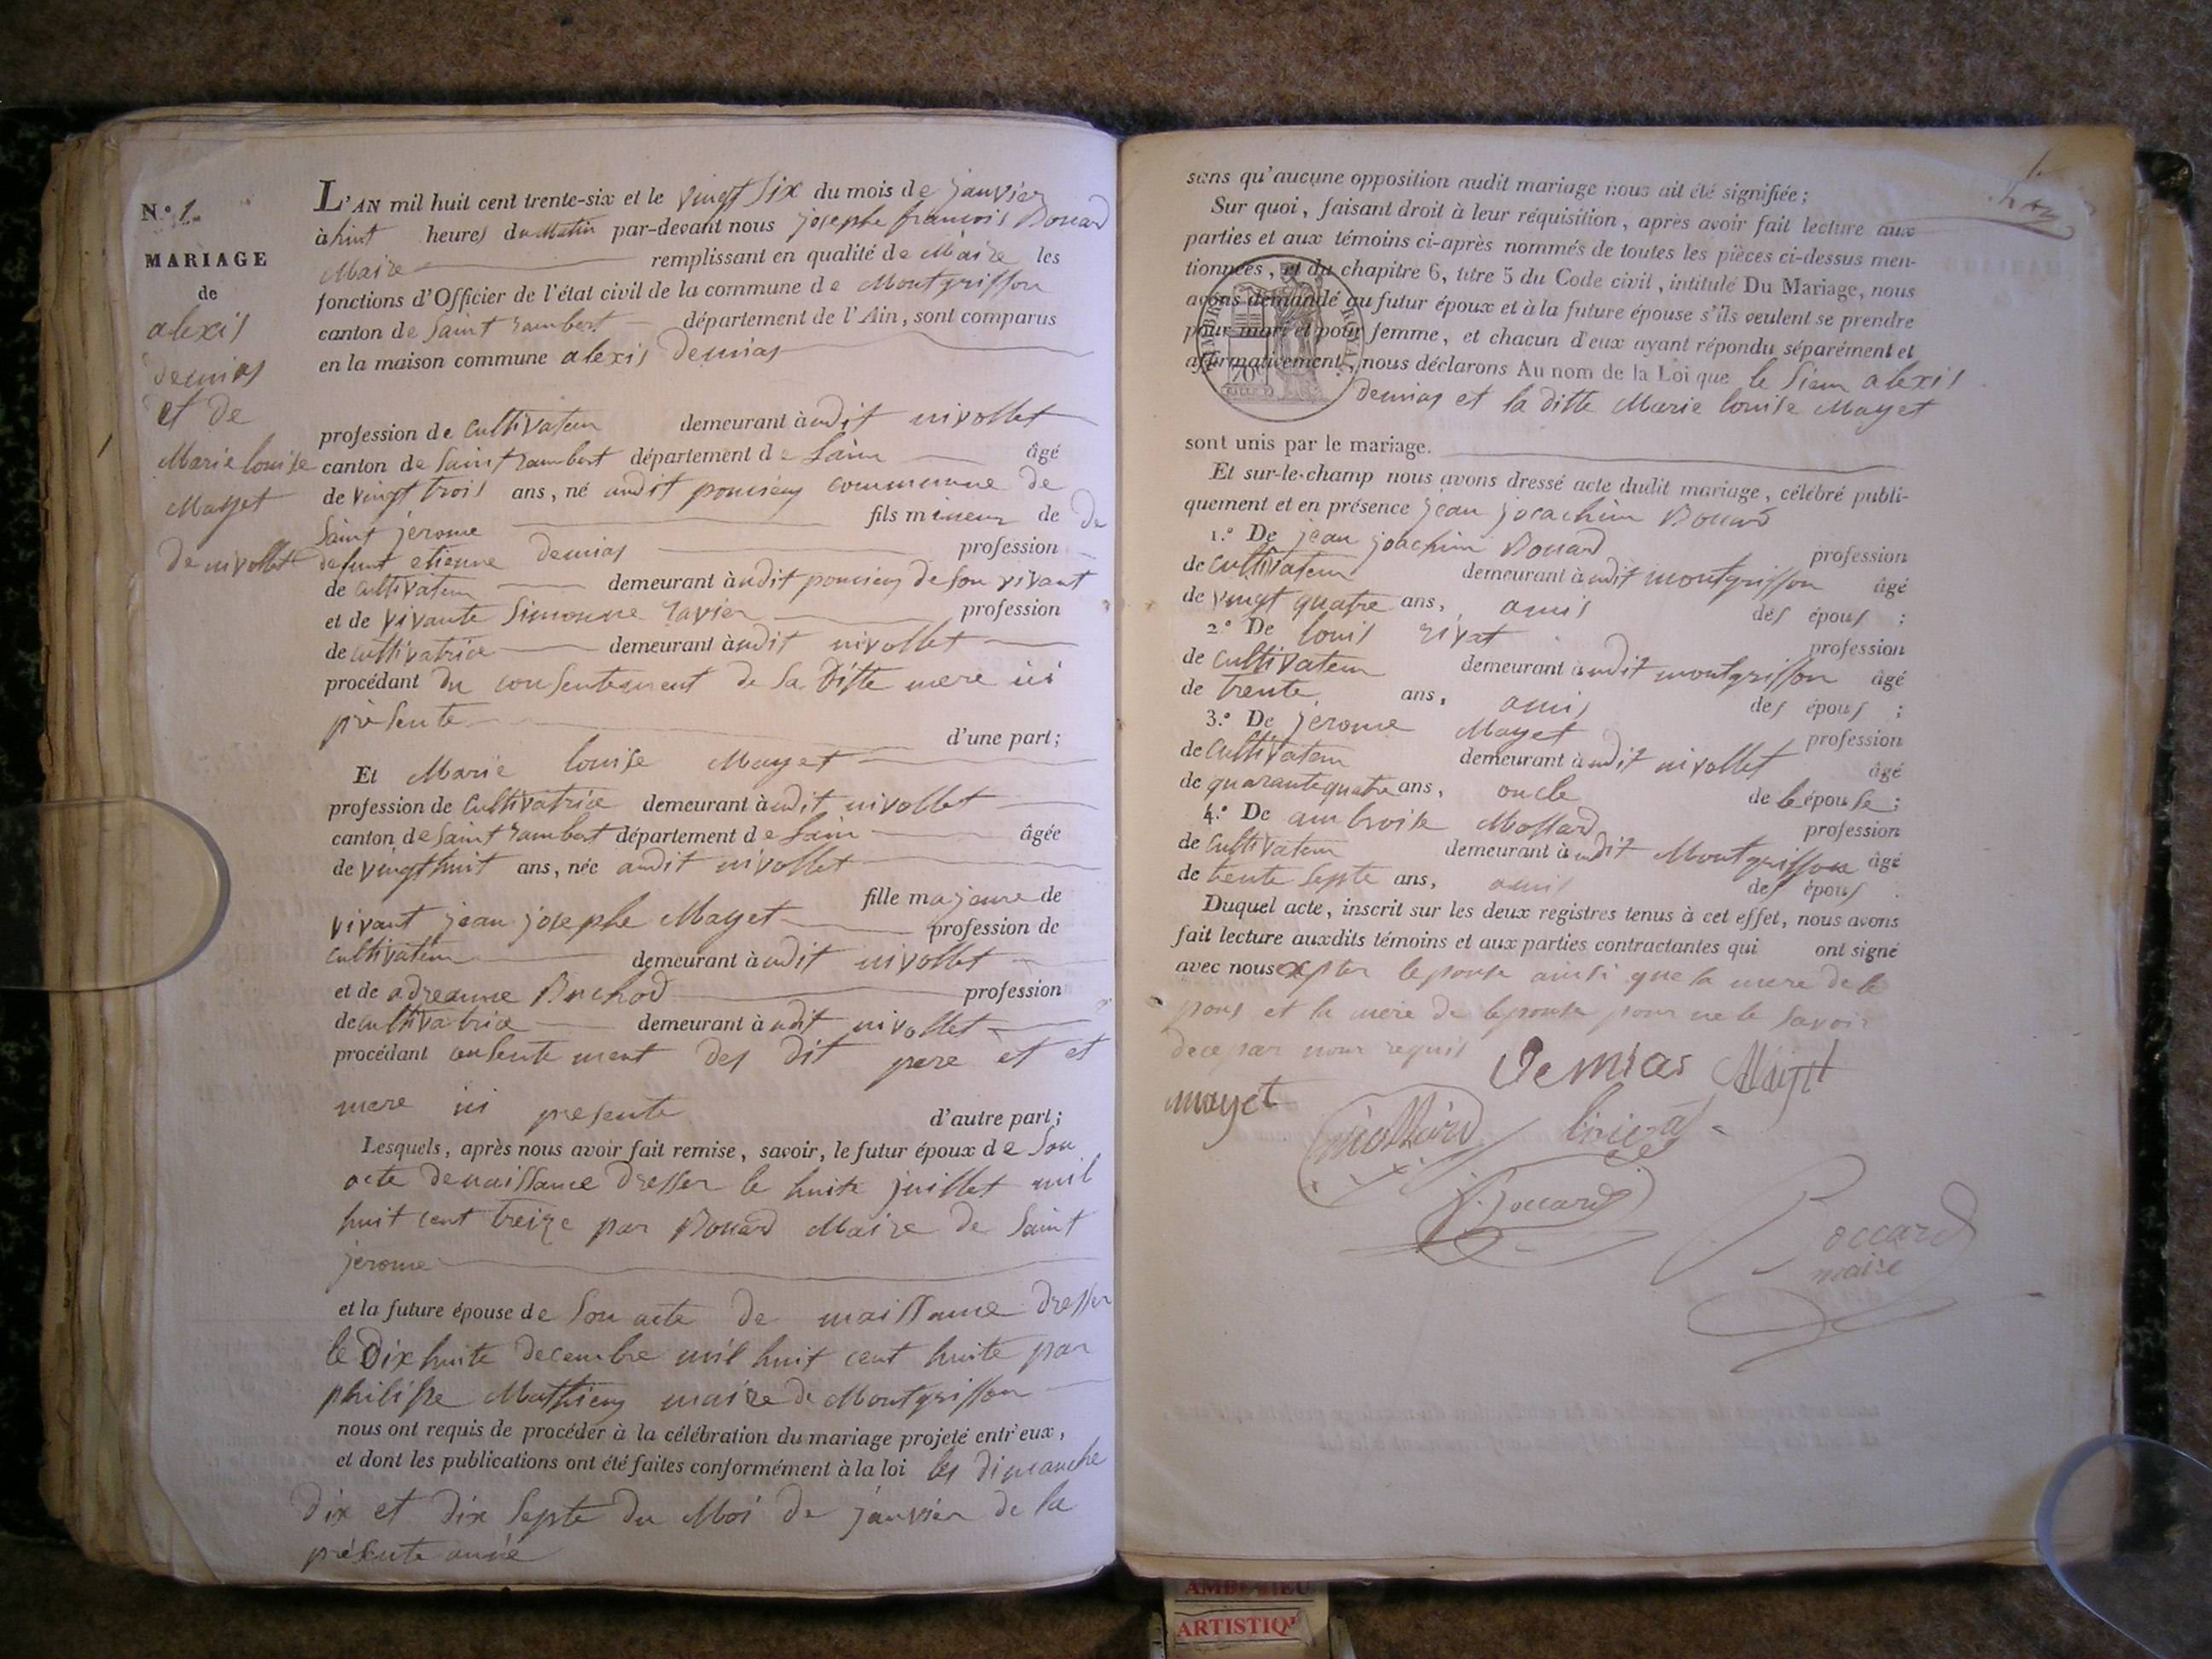 N.º 1.
MARIAGE
de
alexis
demias
et de
Marie louise
Mayet
de nivollet
L'AN mil huit cent trente-six et le vingt six du mois de janvier
à huit heures du Matin par-devant nous josephe francois Bouard
Maire remplissant en qualité de Maire les
fonctions d'Officier de l'état civil de la commune de Montgriffon
canton de Saint rambert département de l'Ain, sont comparus
en la maison commune alexis demias
profession de cultivateur demeurant à udit nivollet
canton de Saint rambert département de Lain âgé
de vingt trois ans, né audit poncieux commune de
Saint jerome fils mineur de de
defunt etienne demias profession
de cultivateur demeurant à udit poncieux de son vivant
et de vivante Simonne ravier profession
de cultivatrice demeurant à udit nivollet
procédant du consentement de sa ditte mere ici
présente
d'une part;
Et Marie louise Mayet
profession de cultivatrice demeurant à udit nivollet
canton de Saint rambert département de Lain âgée
de vingt huit ans, née audit nivollet
fille majeure de
vivant jean josephe Mayet profession de
cultivateur demeurant à udit nivollet
et de adreanne Buchod profession
de cultivatrice demeurant à udit nivollet
procédant consentement des dit pere et et
mere ici presente d'autre part;
Lesquels, après nous avoir fait remise, savoir, le futur époux de Son
acte de naissance dresser le huite juillet mil
huit cent treize par Bouard Maire de Saint
jerome
et la future épouse de Son acte de naissance dresser
le Dix huite decembre mil huit cent huite par
philippe Mathieu maire de Montgriffon
nous ont requis de procéder à la célébration du mariage projeté entr'eux,
et dont les publications ont été faites conformément à la loi les dimanche
dix et dix septe du Moi de janvier de la
présente année
sans qu'aucune opposition audit mariage nous ait été signifiée;
Sur quoi, faisant droit à leur réquisition, après avoir fait lecture aux
parties et aux témoins ci-après nommés de toutes les pièces ci-dessus men-
tionnées, et du chapitre 6, titre 5 du Code civil, intitulé Du Mariage, nous
avons demandé au futur époux et à la future épouse s'ils veulent se prendre
pour mari et pour femme, et chacun d'eux ayant répondu séparément et
affirmativement, nous déclarons Au nom de la Loi que le Sieur alexis
demias et la ditte Marie louise Mayet
sont unis par le mariage.
Et sur-le-champ nous avons dressé acte dudit mariage, célébré publi-
quement et en présence jean joachim Bouard
1.º De jean joachim Bouard profession
de cultivateur demeurant à udit montgriffon âgé
de vingt quatre ans, amis des épous ;
2.º De louis rivat profession
de cultivateur demeurant à udit montgriffon âgé
de trente ans, amis des épous ;
3.º De jerome Mayet profession
de cultivateur demeurant à udit nivollet âgé
de quarante quatre ans, oncle de le épouse ;
4.º De ambroise Mollard profession
de cultivateur demeurant à udit Montgriffon âgé
de trente septe ans, amis des épous .
Duquel acte, inscrit sur les deux registres tenus à cet effet, nous avons
fait lecture auxdits témoins et aux parties contractantes qui ont signé
avec nous excepter lepouse ainsi que la mere de le
pous et la mere de lepouse pour ne le savoir
de ce par nour requis
Demias Mayet
mayet
mollard
J. Boccard
Boccard
maire
TIMBRE ROYAL
70c
AMBERIEU
ARTISTIQU